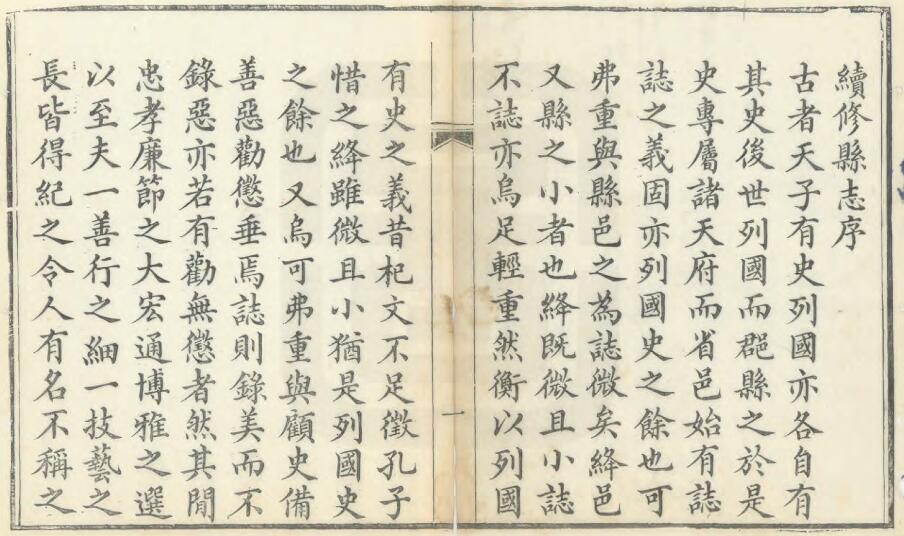 續修縣志序
古者天子有史列國亦各自有
其史後世列國而郡縣之於是
史專屬諸天府而省邑始有誌
誌之義固亦列國史之餘也可
弗重與縣邑之為誌微矣絳邑
又縣之小者也絳既微且小誌
不誌亦烏足輕重然衡以列國
一
有史之義昔杞文不足徵孔子
惜之絳雖微且小猶是列國史
之餘也又烏可弗重與顧史備
善惡勸懲垂焉誌則錄美而不
錄惡亦若有勸無懲者然其間
忠孝廉節之大宏通博雅之選
以至夫一善行之細一技藝之
長皆得紀之令人有名不稱之